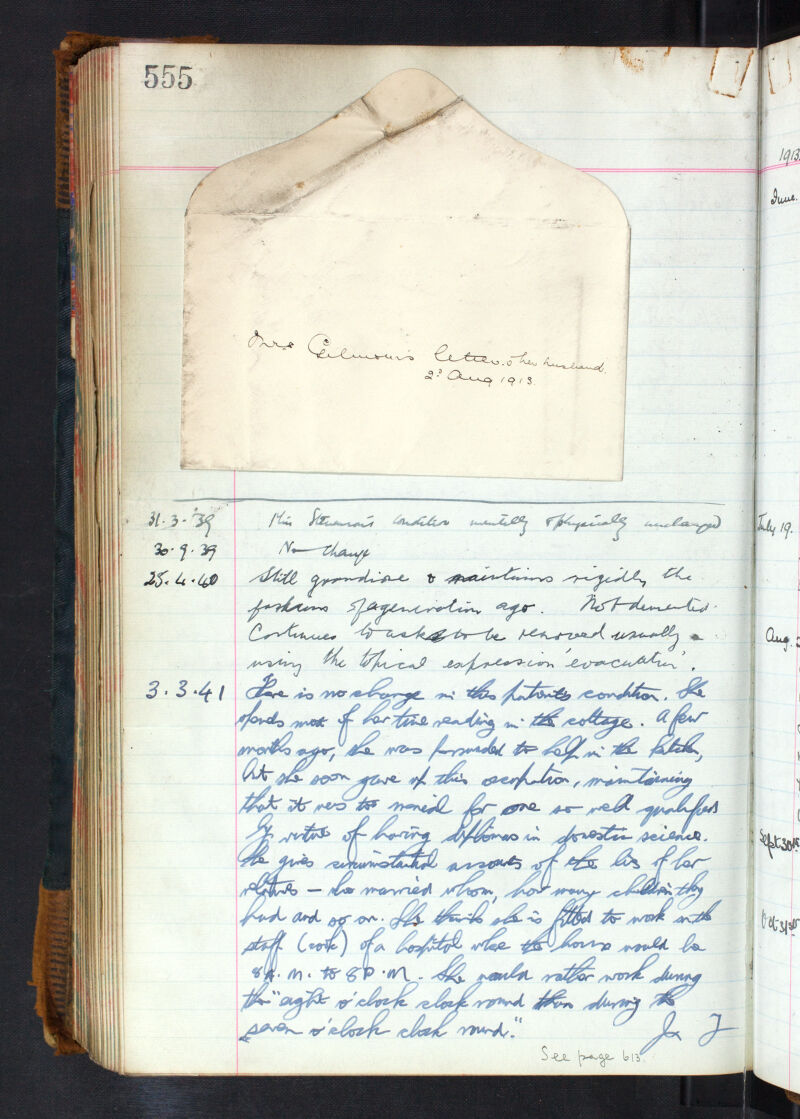 555
Mrs Gilmour's letter to her husband.
2d Aug 1913.
31.3.39 Miss Stevenson's condition mentally & physically unchanged
30.9.39 No change
25.4.40 Still grandiose & maintains rigidly the
fashions of a generation ago. Not demented.
Continues to ask to be removed usually
using the topical expression 'evacuation'.
3.3.41 There is no change in this patient's condition. She
spends most of her time reading in the cottage. A few
months ago, she was persuaded to help in the kitchen,
but she soon gave up this occupation, maintaining
that it was too menial for one so well qualified
by virtue of having diplomas in domestic science.
She gives circumstantial accounts of the lives of her
relatives – who married whom, how many children they
had and so on. She thinks she is fitted to work on the
staff (cook) of a hospital where the hours would be
8 A.M. to 8 P.M. She would rather work during
the "eight o'clock clock round than during the
seven o'clock clock round."
See page 613.
1913
June.
July 19.
Aug.
Sept 30th
Oct 31st